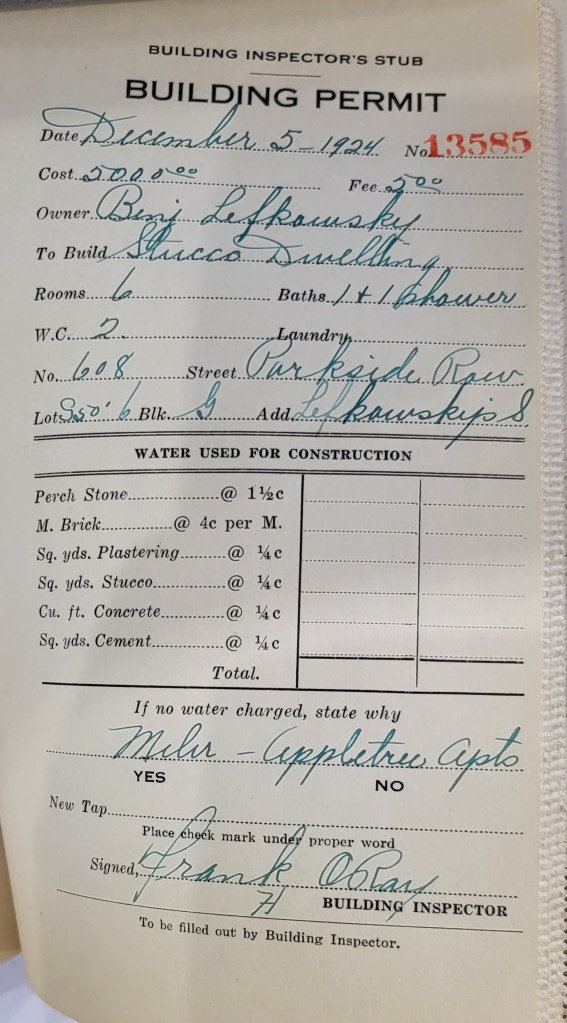 BUILDING INSPECTOR'S STUB
BUILDING PERMIT
Date December 5-1924 No. 13585
Cost 5000.00 Fee 5.00
Owner Benj Lefkowsky
To Build Stucco Dwelling
Rooms 6 Baths 1 + 1 Shower
W.C. 2 Laundry
No. 608 Street Parkside Row
Lot S50' 6 Blk. G Add. Lefkowskip S
WATER USED FOR CONSTRUCTION
Perch Stone @ 1½c
M. Brick @ 4c per M.
Sq. yds. Plastering @ ¼c
Sq. yds. Stucco @ ¼c
Cu. ft. Concrete @ ¼c
Sq. yds. Cement @ ¼c
Total.
If no water charged, state why
- Appletree Apts
YES NO
New Tap
Place check mark under proper word
Signed, Frank O Ray
H BUILDING INSPECTOR
To be filled out by Building Inspector.